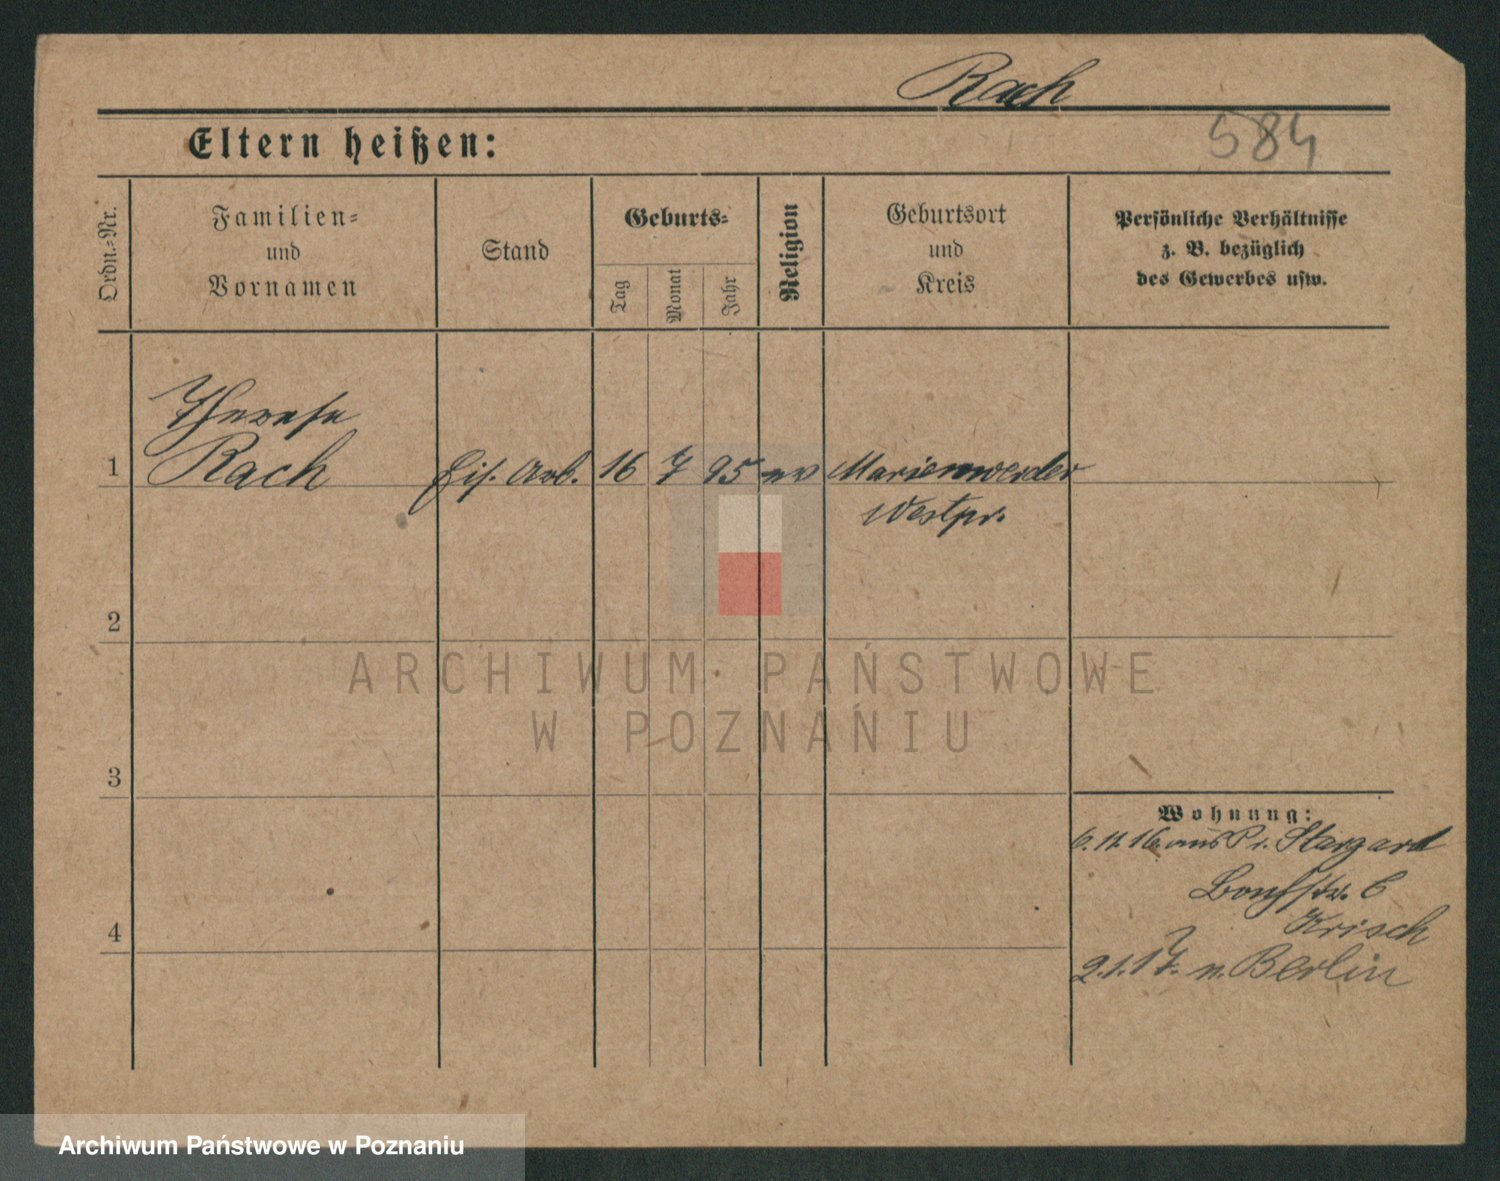 Rach
584
Eltern heißen:
Ordn.-Nr.
Familien-
und
Vornamen
Stand
Geburts-
Tag
Monat
Jahr
Religion
Geburtsort
und
Kreis
Persönliche Verhältnisse
z. B. bezüglich
des Gewerbes usw.
Therese
1 Rach Eis. Arb. 16 7 95 ev Marienwerder
Westpr.
2
3
4
Wohnung:
6.11.16 aus Pr. Stargard
6
Krisch
2.1.17. n. Berlin
ARCHIWUM PAŃSTWOWE
W POZNANIU
Archiwum Państwowe w Poznaniu